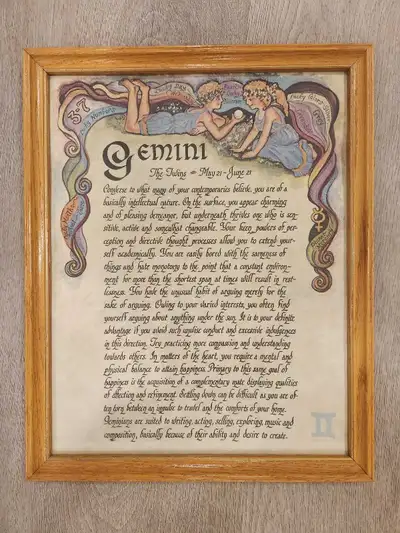 3·7
Lucky Day
Lucky Numbers
GEMINI
The Twins = May 21 - June 21
Converse to what many of your contemporaries believe, you are of a
basically intellectual nature. On the surface, you appear charming
and of pleasing demeanor, but underneath thrides one who is sen-
sitive, active and somewhat changeable. Your keen powers of per-
ception and directive thought processes allow you to extend your-
self academically. You are easily bored with the sameness of
things and hate monotony to the point that a constant environ-
ment for more than the shortest span at times will result in rest-
lessness. You have the unusual habit of arguing merely for the
sake of arguing. Owing to your varied interests, you often find
yourself arguing about anything under the sun. It is to your definite
advantage if you avoid such unwise conduct and excessive indulgences
in this direction. Try practicing more compassion and understanding
towards others. In matters of the heart, you require a mental and
physical balance to attain happiness. Primary to this same goal of
happiness is the acquisition of a complementary mate displaying qualities
of affection and refinement. Settling down can be difficult as you are of-
ten torn between an impulse to travel and the comforts of your home.
Geminians are suited to writing, acting, selling, exploring, music and
composition, basically because of their ability and desire to create.